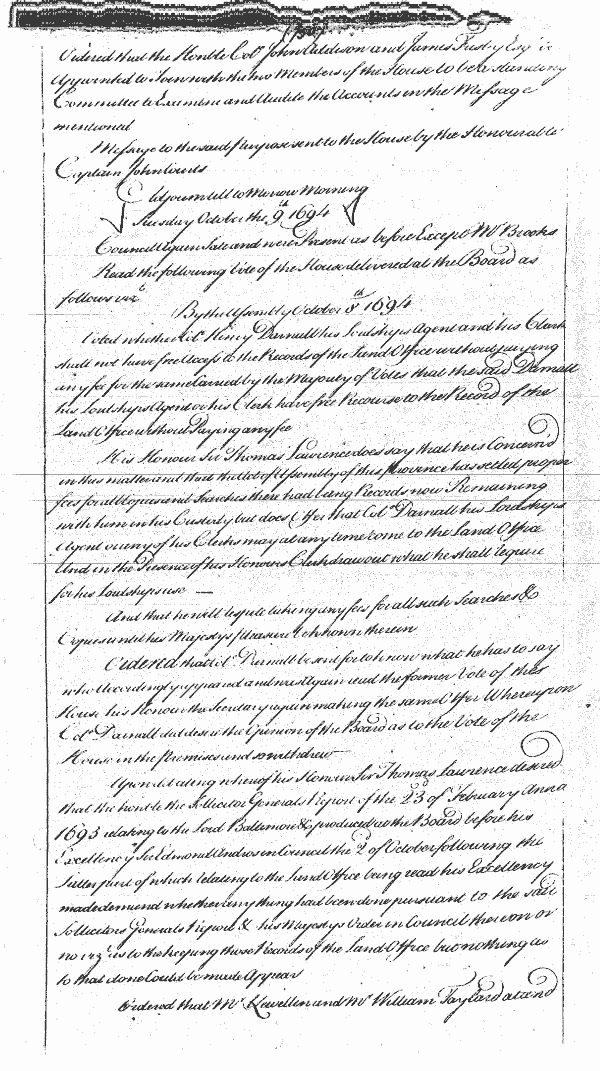 Ordered that the Honble Col.º John Addison and James Frisby Esqr be
Appointed to Joyn with the two Members of the House to be a standing
Committee to Examine and Audite the Accounts in the Message
mentioned
Message to the said purpose sent to the House by the Honourable
Captain John Courts
Adjourn till to Morrow Morning
Tuesday October the 9.th 1694
Council again Sate and were Present as before Except Mr Brooke
Read the following Vote of the House delivered at the Board as
follows vizt
By the Assembly October 8th 1694
Voted whether Colº Henry Darnall his Lordships Agent and his Clerk
shall not have free Access to the Records of the Land Office without paying
any fee for the same Carryed by the Majority of Votes that the said Darnall
his Lordships Agent or his Clerk have free Recourse to the Record of the
Land Office without Paying any fee
His Honour Sir Thomas Lawrence does say that he is Concern'd
in this matter and that the Act of Assembly of this Province has setled proper
fees for all Copies and Searches there had being Records now Remaining
with him in his Custody but does Offer that Colº Darnall his Lordships
Agent or any of his Clerks may at any time come to the Land Office
And in the Presence of his Honours Clerk draw out what he shall require
for his Lordships use —
And that he will respite taking any fees for all such Searches &
Copies until his Majestys pleasure be known therein
Ordered that Colº Darnall be sent for to know what he has to say
who Accordingly appeared and was Again read the former Vote of this
House his Honour the Secretary again making the same Offer Whereupon
Colº Darnall did desire the Opinion of the Board as to the Vote of the
House in the Premises and so withdrew
Upon debating whereof his Honour Sir Thomas Lawrence desired
that the honble the Sollicitor Generals Report of the 23 of February Anno
1693 relating to the Lord Baltemore & produced at the Board before his
Excellency Sir Edmond Andros in Council the 2d of October following the
latter part of which relateing to the Land Office being read his Excellency
made demand whether any thing had been done pursuant to the said
Sollicitors Generals Report & his Majestys Order in Council thereon or
no vizt as to the keeping those Records of the Land Office but nothing as
to that done Could be made Appear
Ordered that Mr Llewellin and Mr William Taylard attend